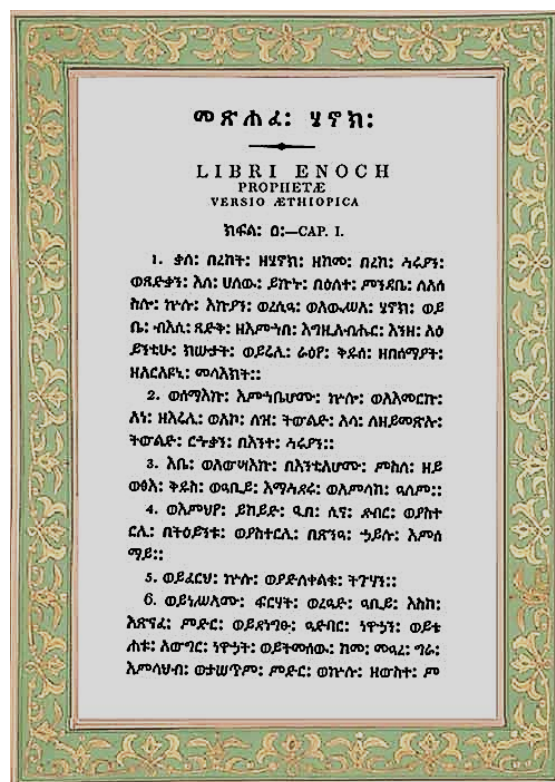 መጽሐፈ፡ ሄኖክ፡
LIBRI ENOCH
PROPHETÆ
VERSIO ÆTHIOPICA
ክፍል፡ ፩፡—CAP. I.
1. ቃለ፡ በረከት፡ ዘሄኖክ፡ ዘከመ፡ በረከ፡ ኅሩያነ፡
ወጻድቃነ፡ እለ፡ ሀለው፡ ይኩኑ፡ በዕለተ፡ ምንዳቤ፡ ለአሰ
ስሎ፡ ኵሉ፡ እኩያን፡ ወረሲዓ፡ ወአውሥአ፡ ሄኖክ፡ ወይ
ቤ፡ ብእሲ፡ ጻድቅ፡ ዘእምኀበ፡ እግዚአብሔር፡ እንዘ፡ አዕ
ይንቲሁ፡ ክሡታት፡ ወይሬኢ፡ ራዕየ፡ ቅዱሰ፡ ዘበሰማያት፡
ዘአርአዩኒ፡ መላእክት፡፡
2. ወሰማእኩ፡ እምኀቤሆሙ፡ ኵሎ፡ ወአእመርኩ፡
አነ፡ ዘእሬኢ፡ ወአኮ፡ ለዝ፡ ትውልድ፡ አላ፡ ለዘይመጽኡ፡
ትውልድ፡ ርኁቃን፡ በእንተ፡ ኅሩያን፡፡
3. እቤ፡ ወአውሣእኩ፡ በእንቲአሆሙ፡ ምስለ፡ ዘይ
ወፅእ፡ ቅዱስ፡ ወዓቢይ፡ እማኅደሩ፡ ወአምላከ፡ ዓለም፡፡
4. ወእምህየ፡ ይከይድ፡ ዲበ፡ ሲና፡ ደብር፡ ወያስተ
ርኢ፡ በትዕይንቱ፡ ወያስተርኢ፡ በጽንዓ፡ ኃይሉ፡ እምሰ
ማይ፡፡
5. ወይፈርህ፡ ኵሉ፡ ወያድለቀልቁ፡ ትጉሃን፡፡
6. ወይነሥኦሙ፡ ፍርሃት፡ ወረዓድ፡ ዓቢይ፡ እስከ፡
አጽናፈ፡ ምድር፡ ወይደነግፁ፡ ዓድባር፡ ነዋኃን፡ ወይቴ
ሐቱ፡ አውግር፡ ነዋኃት፡ ወይትመሰው፡ ከመ፡ መዓረ፡ ግራ፡
እምላህብ፡ ወታሠጥም፡ ምድር፡ ወኵሉ፡ ዘውስተ፡ ም